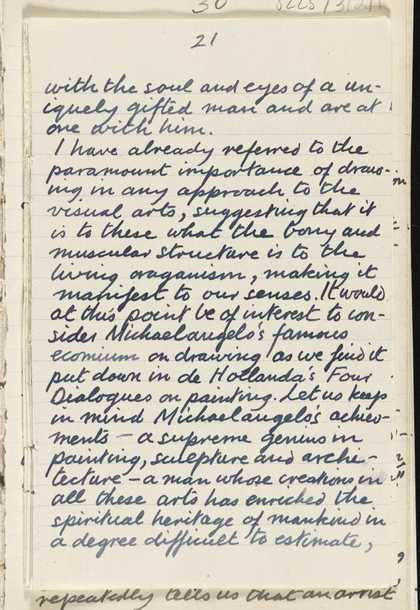 30
21
with the soul and eyes of a un-
iquely gifted man and are at
one with him.
I have already referred to the
paramount importance of draw-
ing in any approach to the
visual arts, suggesting that it
is to these what the bony and
muscular structure is to the
living oraganism, making it
manifest to our senses. It would
at this point be of interest to con-
sider Michaelangelo's famous
ecomium on drawing as we find it
put down in de Hollanda's Four
Dialogues on painting. Let us keep
in mind Michaelangelo's achiev-
ments – a supreme genius in
painting, sculpture and archi-
tecture – a man whose creations in
all these arts has enriched the
spiritual heritage of mankind in
a degree difficult to estimate,
repeatedly tells us that an artist